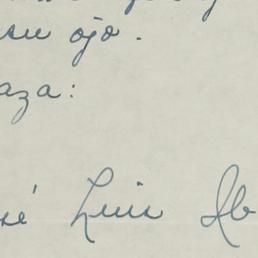 su ojo.
aza:
sé Luis Ab